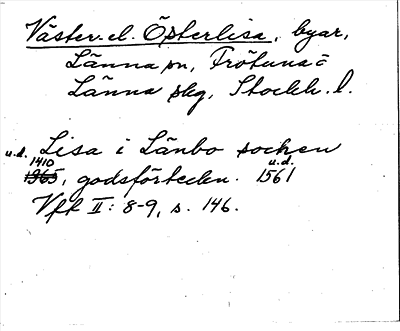 Väster- el. Österlisa, byar,
Länna sn, Frötuna o
Länna skg, Stockh. l.
u.d. Lisa i Länbo socken
1410 u.d.
1365, godsförteckn. 1561
Vft II: 8-9, s. 146.